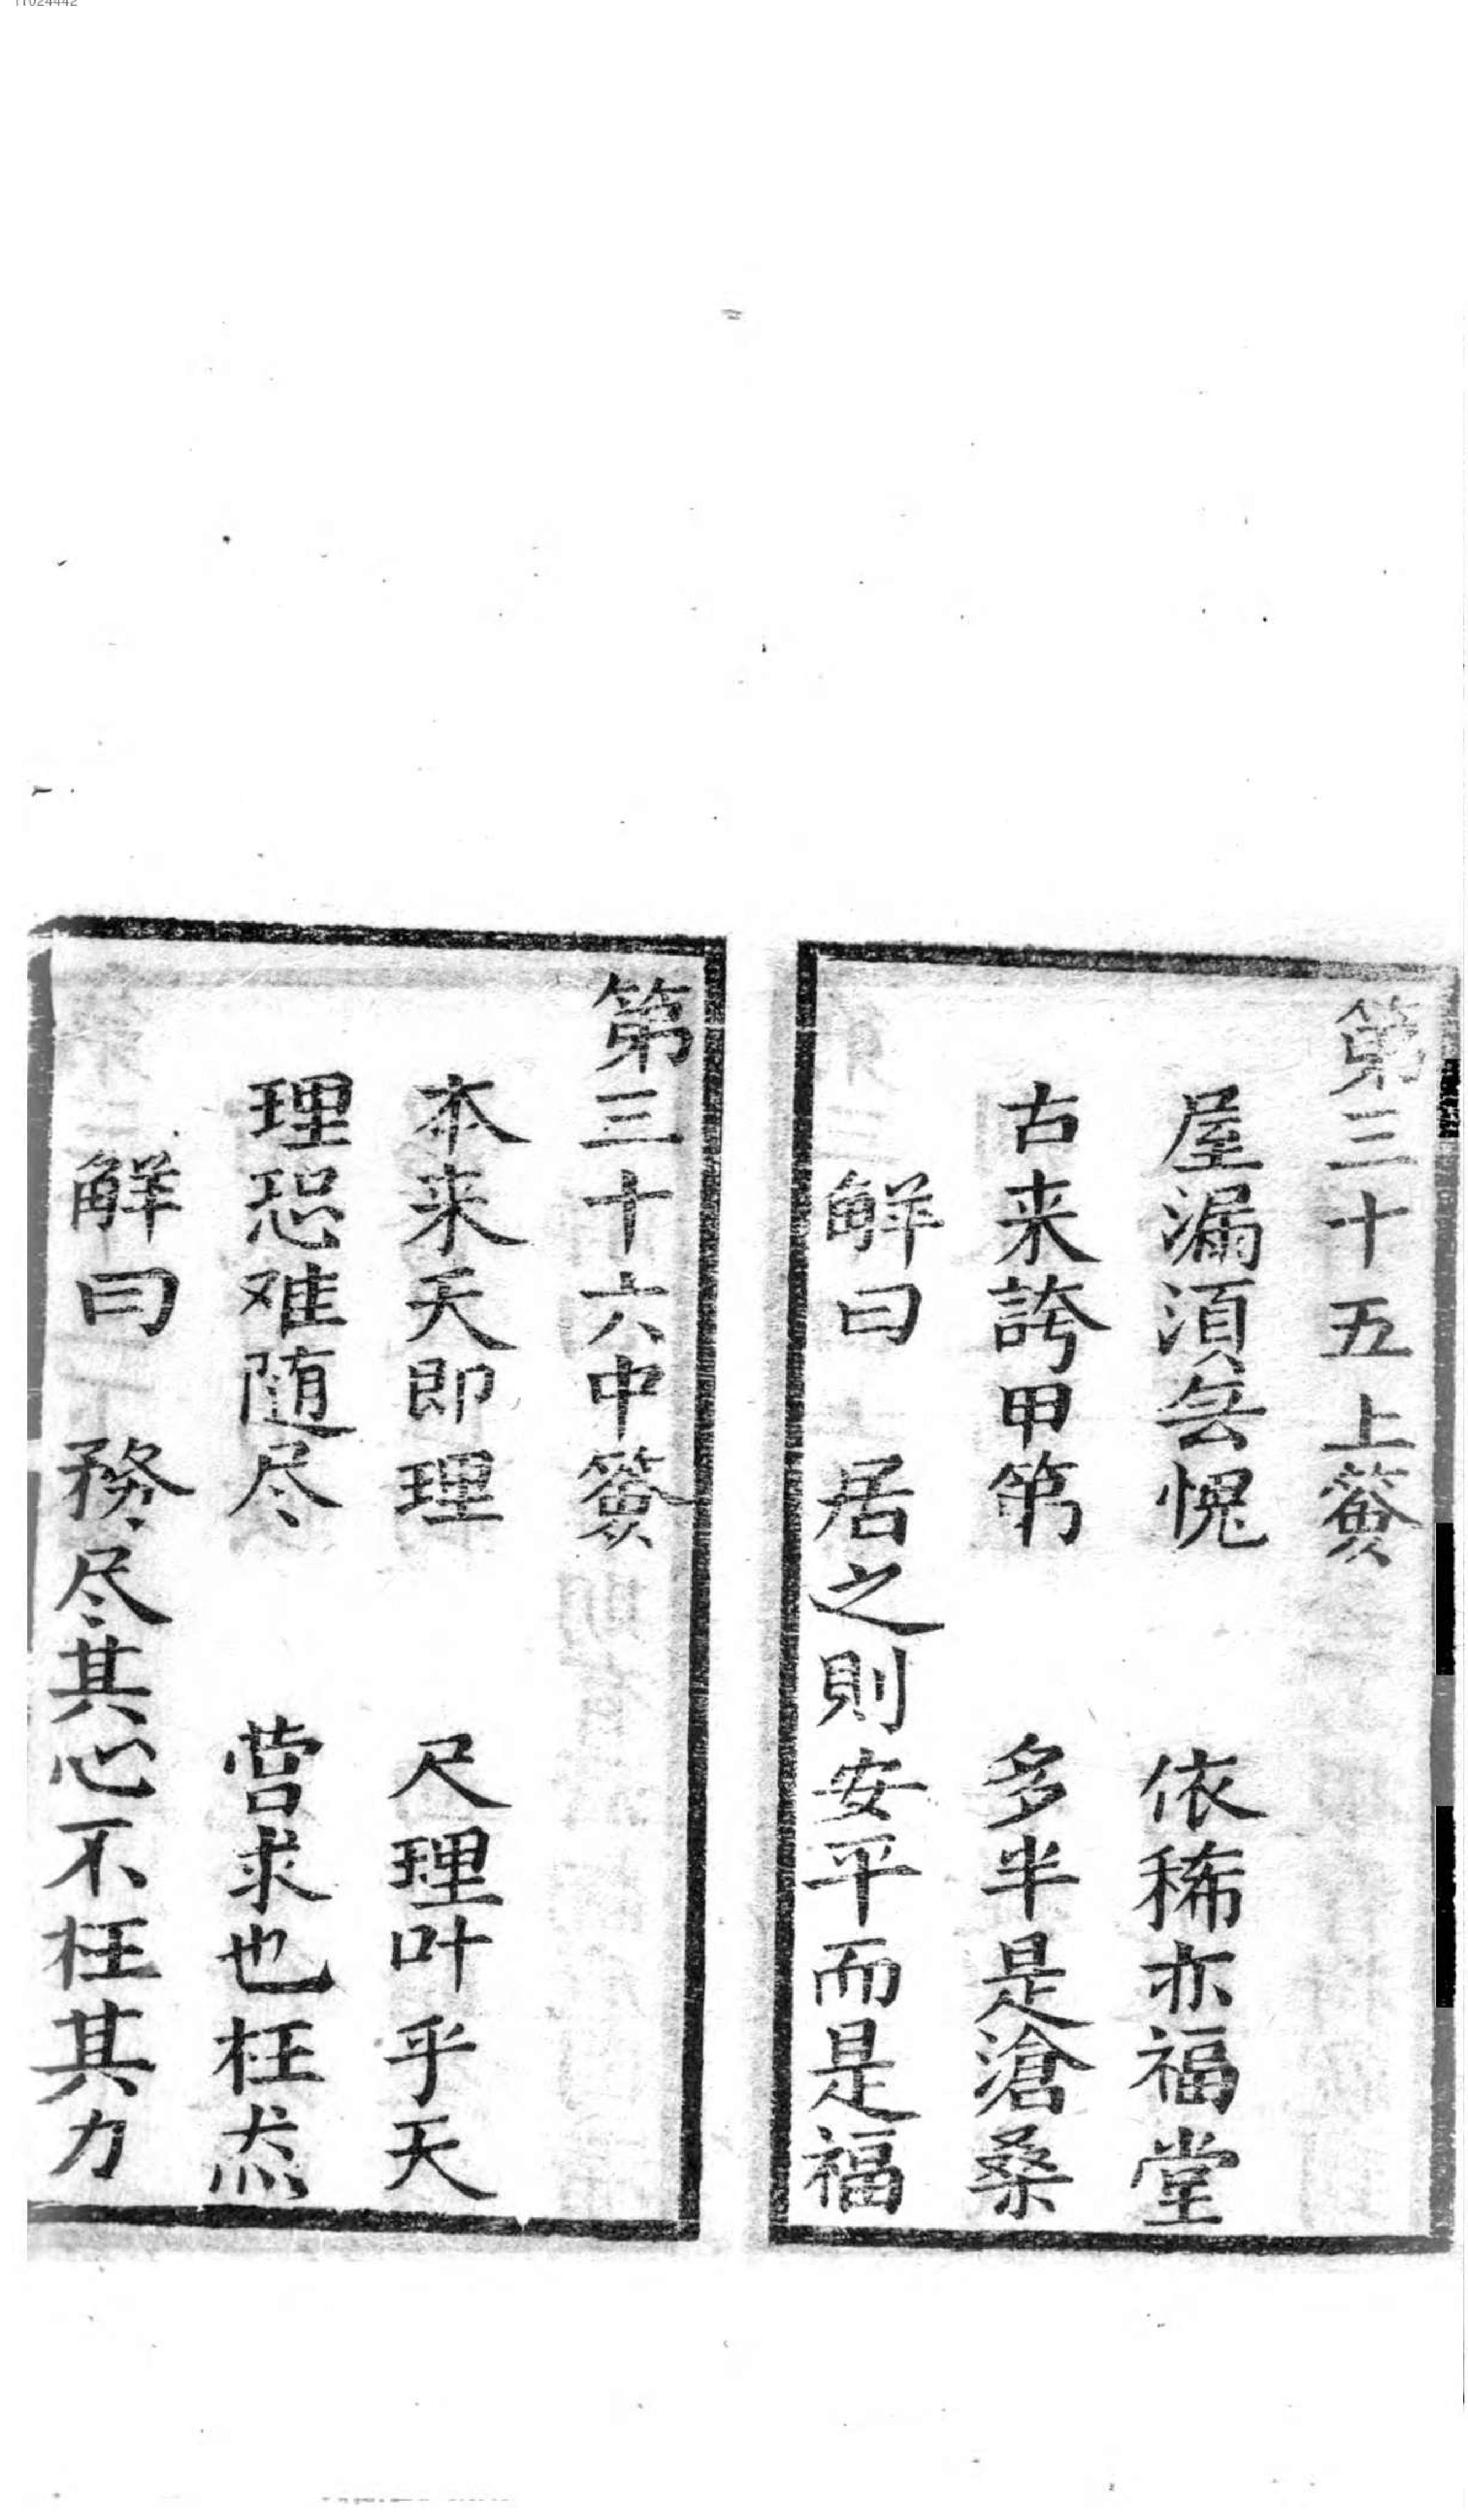 第三十五上簽
屋漏湏無愧　依稀亦福堂
古来誇甲第　多半是滄桑
解曰　居之則安平而是福
第三十六中簽
本来天即理　尺理叶乎天
理恐难随尽　营求也枉焘
解曰　務尽其心不枉其力